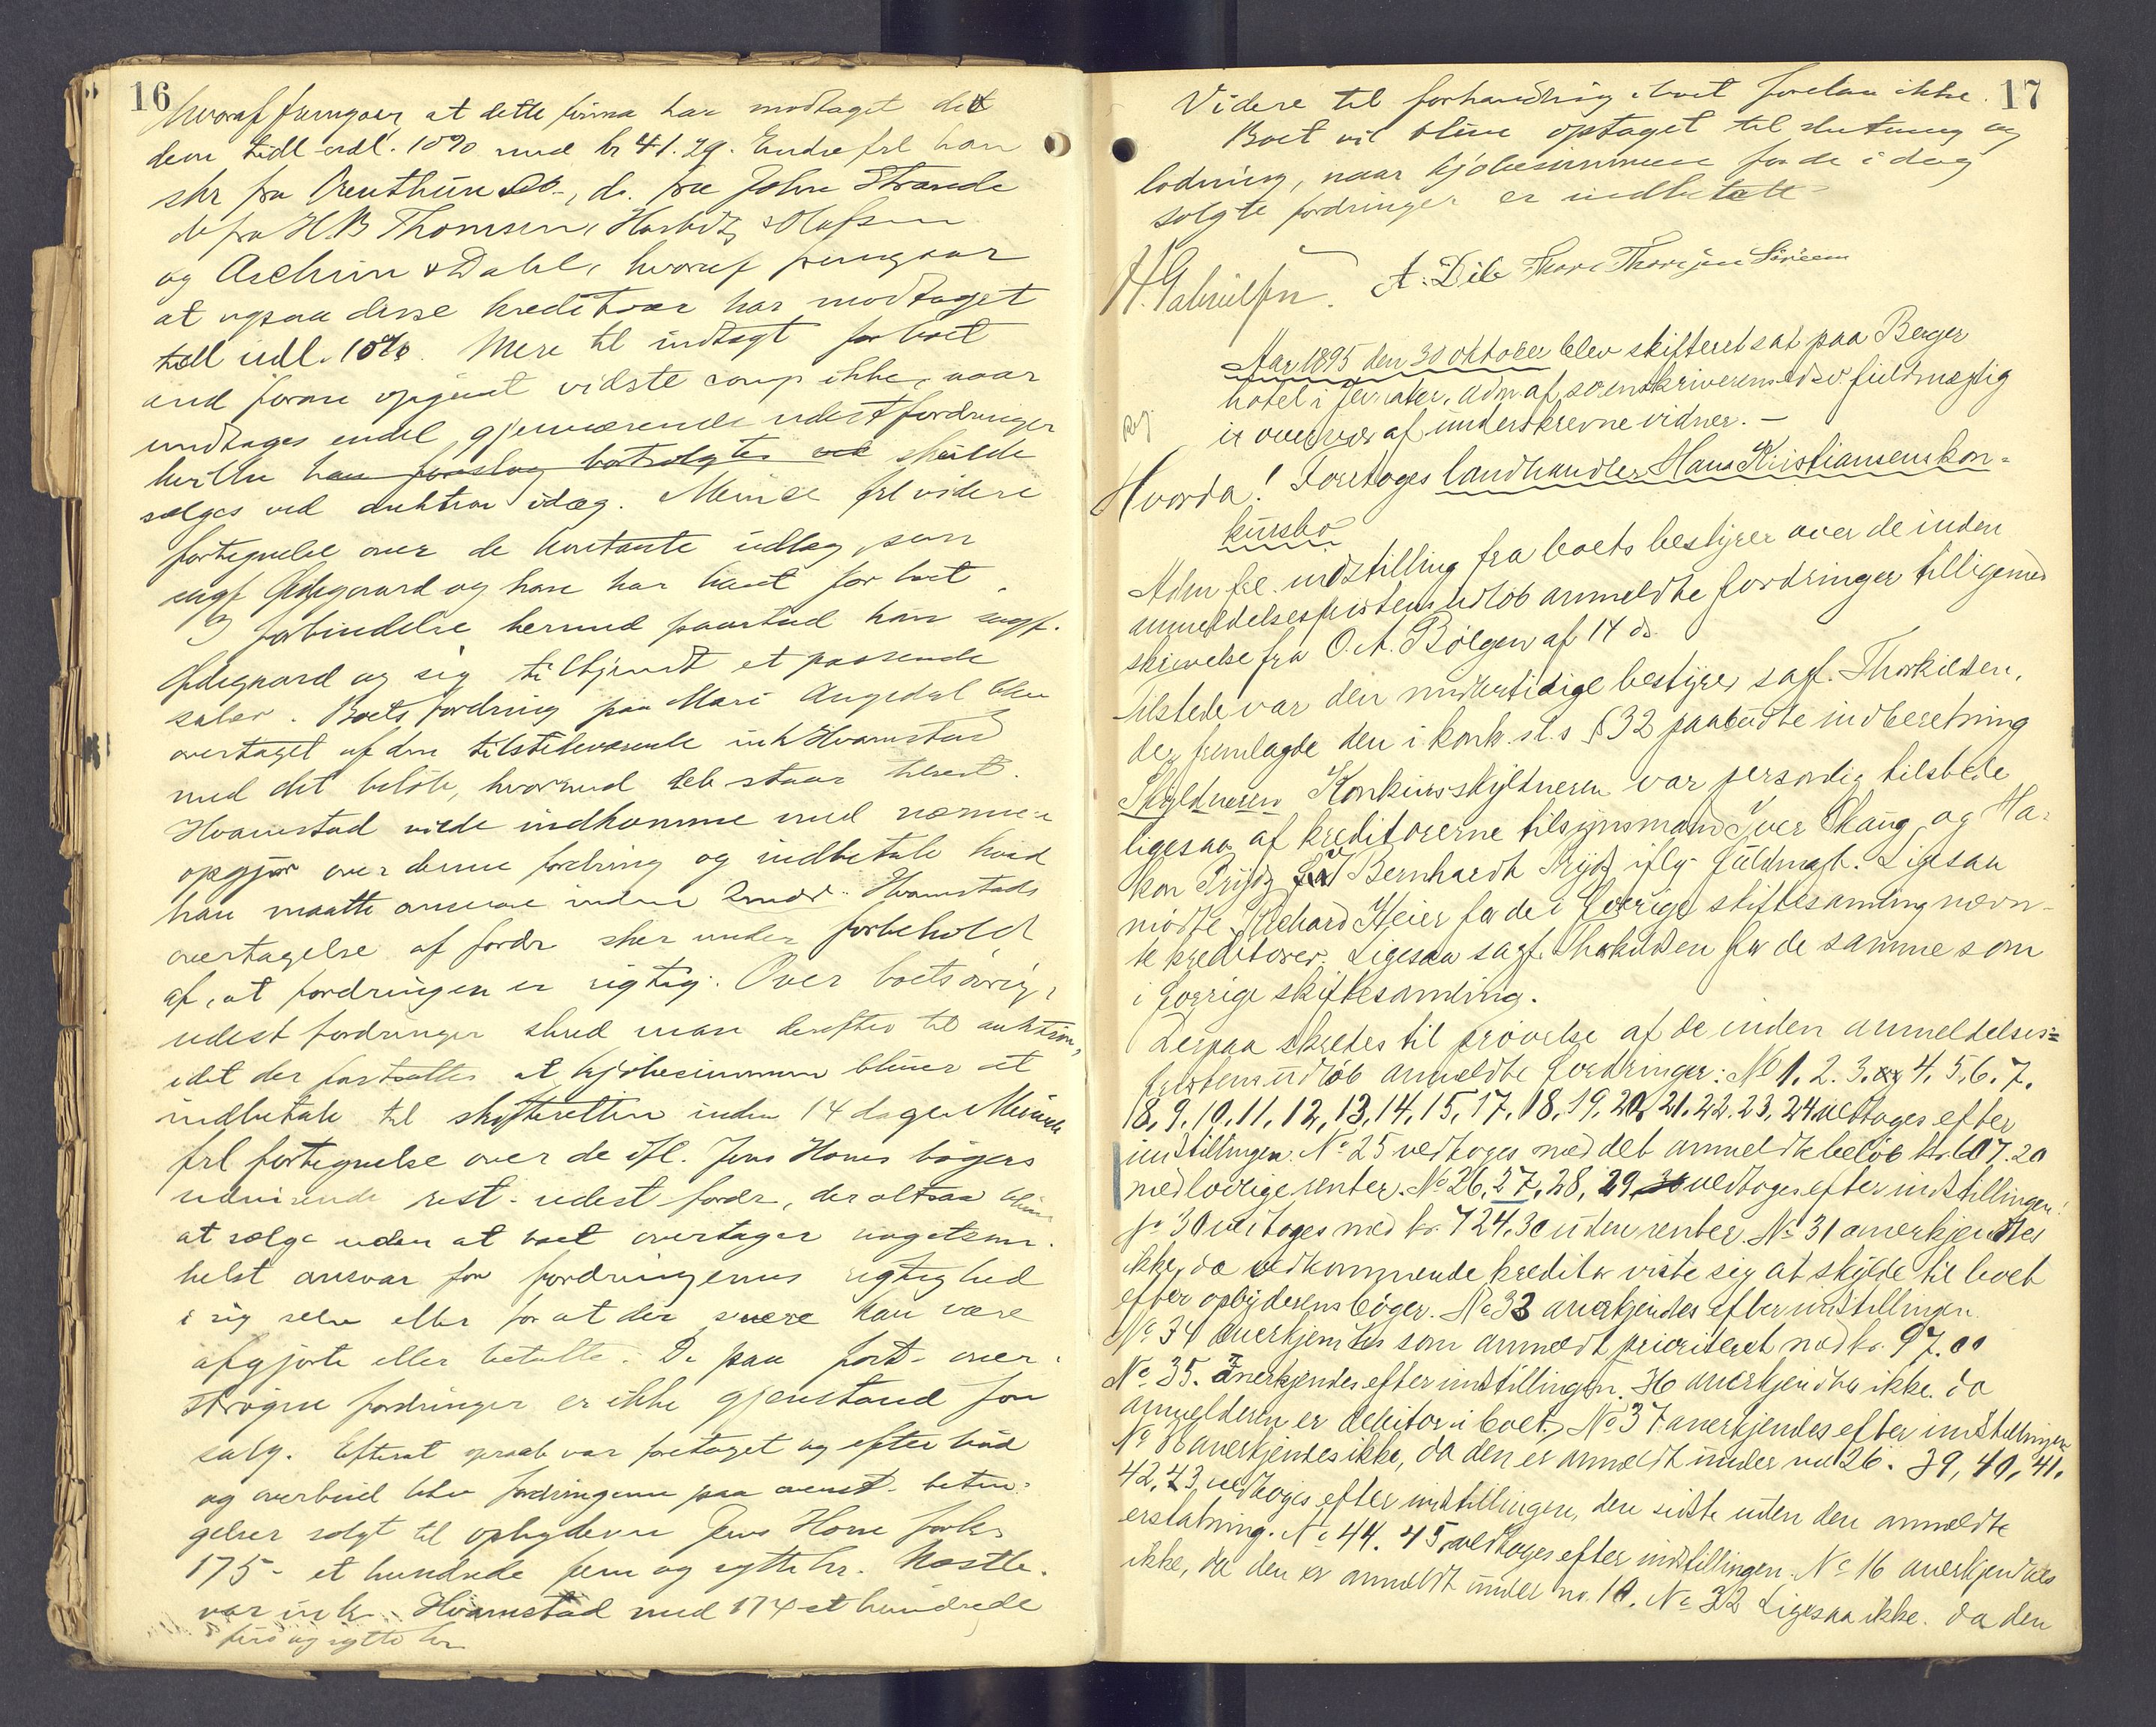 16
hvoraf fremgaar, at dette firma har modtaget det
dem tidl udl. 10% med kr 41.29. Endre frl han
skr fra Arenthun &Co, do. fra John Strande
do fra H B Thomsen, Harbitz & Olafsen
og Aschim & Dahl, hvoraf fremgaar
at ogsaa disse kreditorer har modtaget
tidl udl. 10%. Mere til indtægt for boet
end foran opgivet vidste comp ikke, naar
undtages endel gjenværende udest fordringer
hvilke han foreslog bortsolgtes ved skulde
sælges ved auktion idag. Meinse frl videre
fortegnelse over de kontante udlæg, som
sagf Ødegaard og han har havt for boet
I forbindelse hermed paastod han sagf.
Ødegaard og sig tilkjendt et passende
salær. Boets fordring paa Mari Augedal blev
overtaget af den tilstedeværende ink Hvamstad
med det beløb, hvormed det staar tilrest.
Hvamstad vilde indkomme med nærmere
opgjør over denne fordring og indbetale hvad
han maatte ansvare inden 2 mdr. Hvamstads
overtagelse af fordr sker under forbehold
af, at fordringen er rigtig. Over boets øvrige
udest fordringer skred man derefter til auktion,
idet der fastsattes at kjøbesummen bliver at
indbetale til skifteretten inden 14 dage. Meinse
frl fortegnelse over de ifl. Jens Hones bøgers
udvisende rest. udest fordr, der altsaa bliver
at sælge uden at boet overtager nogetsom-
helst ansvar for fordringernes rigtighed
i sig selv eller for at der svære kan være
afgjorte eller betalte. De paa fort. over-
strøgne fordringer er ikke gjenstand for
salg. Efterat opraab var foretaget og efter bud
og overbud blev fordringerne paa ovenst. betin-
gelser solgt til opbyderen Jens Hone for kr
175 - et hundrede fem og sytti kr. Næstb.
var ink. Hvamstad med 174 et hundrede
fire og sytti kr
17
Videre til forhandling i boet forelaa ikke.
Boet vil blive optaget til slutning og
lodning, naar kjøbesummene for de i dag
solgte fordringer er indbetalt
H. Gabrielsen. A. Dile Thore Thoresen Sørseen
Aar 1895 den 30 oktober blev skifteret sat paa Berger
hotel i Jevnaker, adm af sorenskriverens edsv. fuldmægtig
i overvær af underskrevne vidner. —
Hvorda! Foretoges landhandler Hans Kristiansens kon-
kursbo
Adm frl. indstilling fra boets bestyrer over de inden
anmeldelsesfristens udløb anmeldte fordringer tilligemed
skrivelse fra O. A. Bølgen af 14 ds.
Tilstede var den midlertidige bestyrer sagf. Thorkildsen,
der fremlagde den i konk. sl.s § 32 paabudte indberetning
Skyldneren Konkursskyldneren var personlig tilstede
ligesaa af kreditorerne tilsynsmand Iver Skaug og Ha-
kon Prydz for Bernhardt Prydz iflg fuldmagt. Ligesaa
mødte Richard Heier for de i forrige skiftesamling nævn-
te kreditorer. Ligesaa sagf. Thorkildsen for de samme som
i forrige skiftesamling.
Derpaa skredes til prøvelse af de inden anmeldelses-
fristens udløb anmeldte fordringer: No 1. 2. 3. og 4. 5. 6. 7.
8. 9. 10. 11. 12, 13, 14, 15, 17, 18, 19, 20, 21, 22. 23, 24 vedtoges efter
indstillingen. No 25 vedtoges med det anmeldte beløb kr. 607.20
med lovlige renter. No 26, 27, 28, 29, 30 vedtoges efter indstillingen.
No 30 vedtoges med kr. 724.30 uden renter. No 31 anerkjendtes
ikke, da vedkommende kreditor viste sig at skylde til boet
efter opbyderens bøger. No 33 anerkjendes efter indstillingen.
No 34 anerkjendtes som anmeldt prioriteret med kr. 97.00
No 35. anerkjendes efter indstillingen. 36 anerkjendtes ikke. da
anmelderen er debitor i boet. No 37 anerkjendes efter indstillingen
No 38 anerkjendes ikke, da den er anmeldt under no 26. 39, 40, 41,
42, 43 vedtoges efter indstillingen, den sidste uden den anmeldte
erstatning. No 44. 45 vedtoges efter indstillingen. No 16 anerkjendtes
ikke, da den er anmeldt under no. 10. No 32 Ligesaa ikke. da den